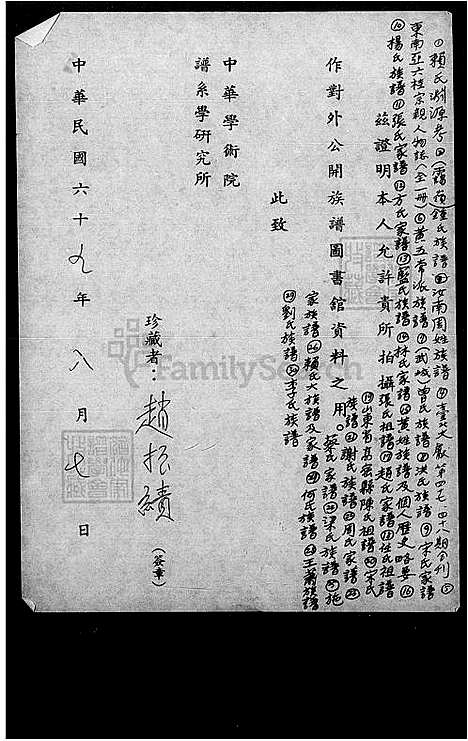 ①賴氏淵源考②(譜嶺)鍾氏族譜③汝南周姓族譜④臺北文獻第四七、四十八期合刊⑤
東南亞六桂宗親人物誌(全一冊)⑥黃五常派族譜⑦(武城)曾氏族譜⑧洪氏族譜⑨宋氏家譜
⑩楊氏族譜⑪張氏家譜⑫方氏家譜⑬藍氏族譜⑭林氏家譜⑮黃姓族譜及個人歷史略要⑯
茲證明本人允許貴所拍攝張氏祖譜⑰趙氏家譜⑱任氏祖譜
⑲山東省高密縣陳氏祖譜⑳宋氏
作對外公開族譜圖書館資料之用。
族譜㉑謝氏族譜㉒周氏家譜㉓
蔡氏家譜㉔梁氏族譜㉕施
家族譜㉖賴氏大族譜及家譜㉗何氏族譜㉘王氏族譜
㉙劉氏族譜㉚李氏族譜
此致
中華學術院
譜系學研究所
珍藏者：趙振績(簽章)
中華民國六十九年八月七日
FamilySearch